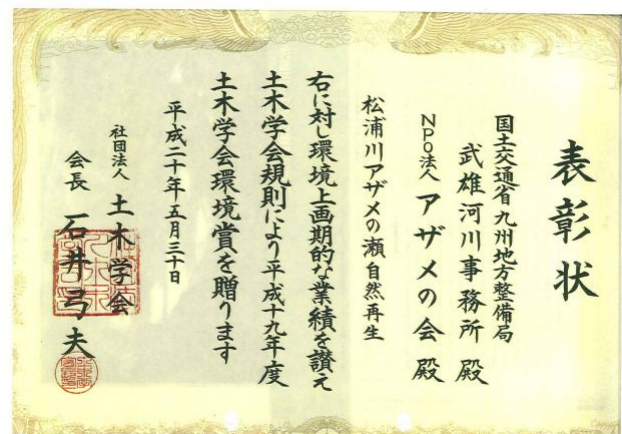 表彰状
国土交通省九州地方整備局
武雄河川事務所 殿
NPO法人 アザメの会 殿
松浦川アザメの瀬自然再生
右に対し環境上画期的な業績を讃え
土木学会規則により平成十九年度
土木学会環境賞を贈ります
平成二十年五月三十日
社団法人 土木学会
会長 石井弓夫